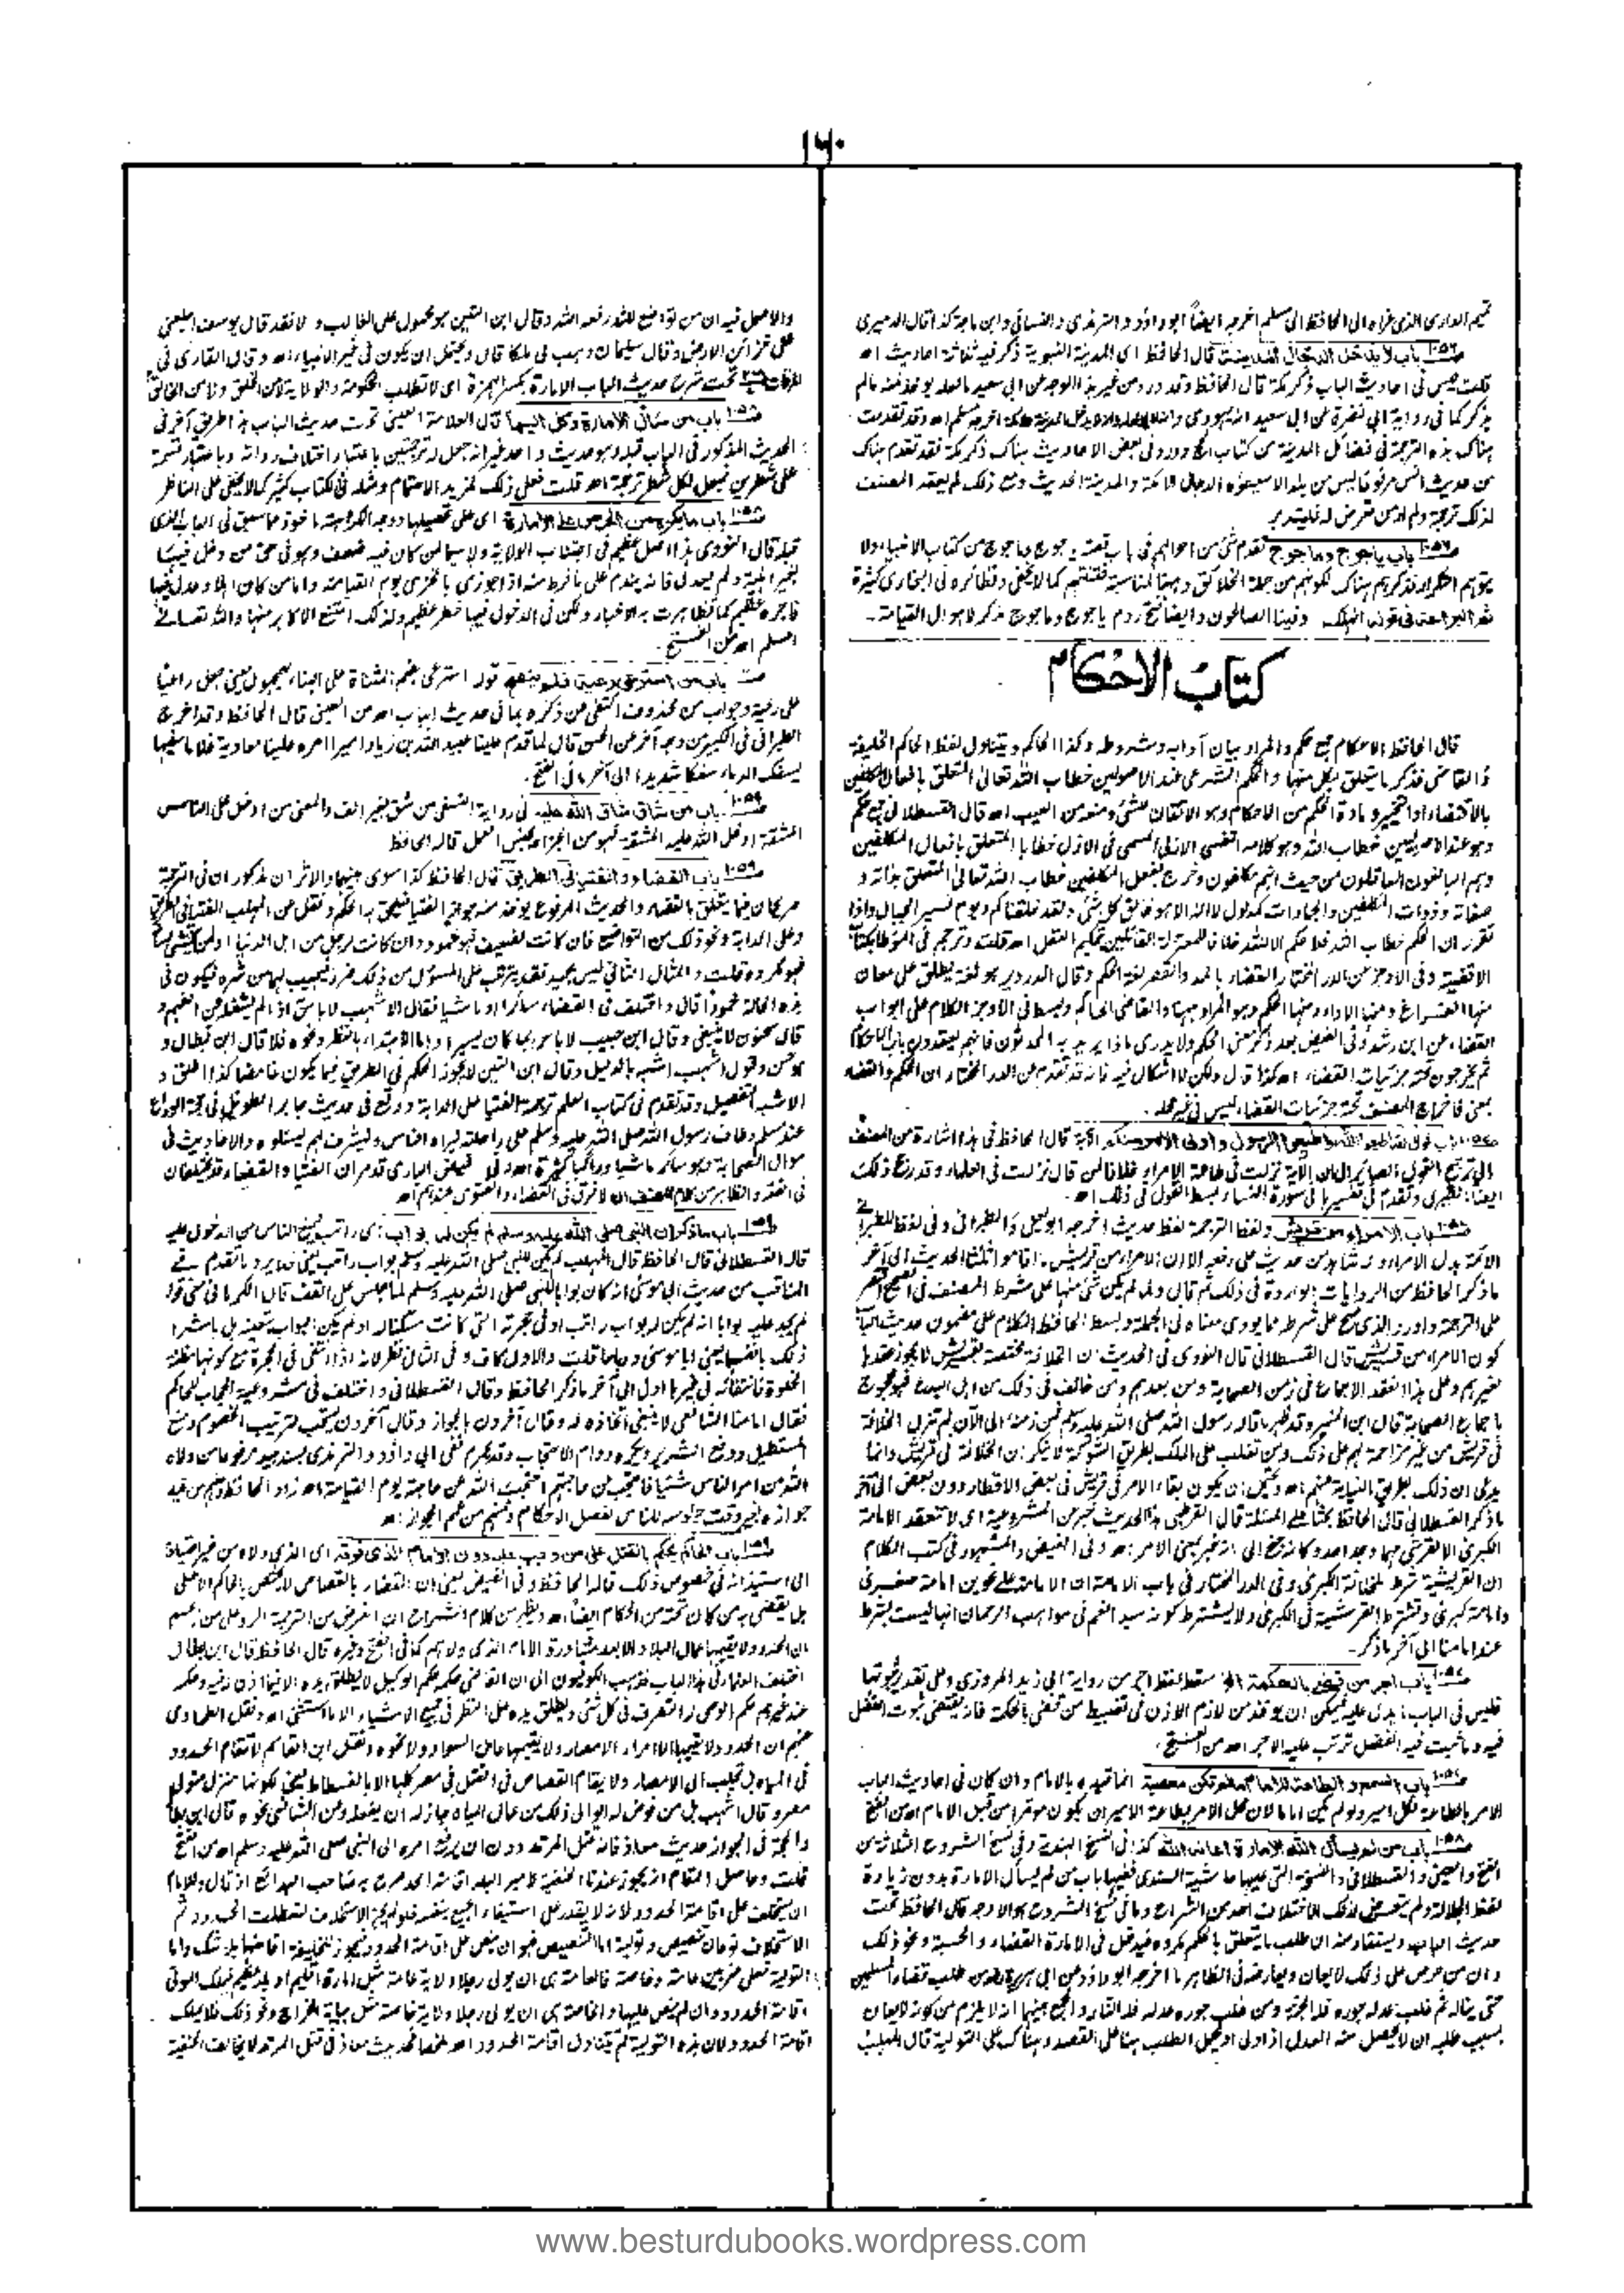 ١٦٠
تميم الدارى الذى عزاه الى الحافظ الى مسلم اخرجه ايضاً ابو داؤد والترمذى والنسائى وابن ماجة كذا قال الدميرى
باب لا يدخل الدجال المدينة قال الحافظ اى المدينة النبوية ذكر فيه ثلاثة احاديث اھ
قلت ليس فى احاديث الباب ذكر مكة قال الحافظ وقد ورد من غير هذا الوجه عن ابى سعيد
هناك هذه الترجمة فى فضائل المدينة من كتاب الحج وورد فى بعض الاحاديث هناك ذكر مكة فقد تقدم هناك
من حديث انس مرفوعا ليس من بلد الا سيطؤه الدجال الا مكة والمدينة الحديث ومع ذلك لم يعقد المصنف
لذلك ترجمة ولم ار من تعرض له فليتدبر
باب ياجوج وماجوج تقدم شئ من احوالهم فى باب قصة ياجوج وماجوج من كتاب الانبياء ولا
يتوهم التكرار فذكرهم هناك لكونهم من جملة الخلائق وههنا لمناسبة فتنتهم كما لا يخفى ونظائره فى البخارى كثيرة
ثم البراعة فى قوله انهلك وفينا الصالحون وايضا فتح ردم ياجوج وماجوج مذكر لاهوال القيامة۔
كتاب الاحكام
قال الحافظ الاحكام جمع حكم والمراد بيان آدابه وشروطه وكذا الحاكم ويتناول لفظ الحاكم الخليفة
والقاضى فذكر ما يتعلق بكل منهما والحكم الشرعى عند الاصوليين خطاب الله تعالى المتعلق بافعال المكلفين
بالاقتضاء او التخيير ومادة الحكم من الاحكام وهو الاتقان للشئ ومنعه من العيب اھ قال القسطلانى جمع حكم
وهو عند الاصوليين خطاب الله وهو كلامه النفسى الازلى المسمى فى الازل خطابا المتعلق بافعال المكلفين
وهم البالغون العاقلون من حيث انهم مكلفون وخرج بفعل المكلفين خطاب الله تعالى المتعلق بذاته و
صفاته وذوات المكلفين والجمادات كمدلول لا اله الا هو خالق كل شئ ولقد خلقناكم ويوم نسير الجبال واذا
تقرر ان الحكم خطاب الله فلا حكم الا لله خلافا للمعتزلة القائلين بتحكيم العقل اھ قلت وترجم فى المؤطا كتاب
الاقضية وفى الاوجز عن الدر المختار القضاء بالمد والقصر لغة الحكم وقال الدردير هو لغة يطلق على معان
منها الفراغ ومنها الاداء ومنها الحكم وهو المراد ههنا والقاضى الحاكم وبسط فى الاوجز الكلام على ابواب
القضاء عن ابن رشد
ثم يخرجون تحته جزئيات القضاء اھ كذا قال ولكن لا اشكال فيه فانه قد تقدم عن الدر المختار ان الحكم والقضاء
بمعنى فاخراج المصنف تحته جزئيات القضاء ليس فى غير محله۔
باب قول الله اطيعوا الله واطيعوا الرسول واولى الامر منكم الآية قال الحافظ فى هذا اشارة من المصنف
الى ترجيح القول الصائر الى ان الآية نزلت فى طاعة الامراء خلافا لمن قال نزلت فى العلماء وقد رجح ذلك
ايضا الطبرى وتقدم فى تفسيرها فى سورة النساء بسط القول فى ذلك اھ۔
باب الامراء من قريش ولفظ الترجمة لفظ حديث اخرجه ابو يعلى والطبرانى وفى لفظ للطبرانى
الائمة بدل الامراء
ما ذكر الحافظ من الروايات الواردة فى ذلك ثم قال ولما لم يكن شئ منها على شرط المصنف فى الصحيح اقتصر
على الترجمة واورد الذى صح على شرطه مما يؤدى معناه فى الجملة وبسط الحافظ الكلام على مضمون حديث الباب
كون الامراء من قريش قال القسطلانى قال النووى فى الحديث ان الخلافة مختصة بقريش لا يجوز عقدها
لغيرهم وعلى هذا انعقد الاجماع فى زمن الصحابة ومن بعدهم ومن خالف فى ذلك من اهل البدع فهو محجوج
باجماع الصحابة قال ابن المنير وقد ظهر ما قاله رسول الله صلى الله عليه وسلم فمن زمنه الى الآن لم تزل الخلافة
فى قريش من غير مزاحمة لهم على ذلك ومن تغلب على الملك بطريق الشوكة لا ينكر ان الخلافة فى قريش وانما
يدعى ان ذلك بطريق النيابة عنهم اھ ويحتمل ان يكون بقاء الامر فى قريش فى بعض الاقطار دون بعض الى آخر
ما ذكر القسطلانى
الكبرى الا لقرشى
ان القريشية شرط للخلافة الكبرى وفى الدر المختار فى باب الامامة ان الامامة على نحوين امامة صغرى
وامامة كبرى وتشترط القرشية فى الكبرى ولا يشترط كونه سيد القوم
عند امامنا الى آخر ما ذكر۔
باب اجر من قضى بالحكمة الخ سقط لفظ اجر من رواية ابى زيد المروزى وعلى تقدير ثبوتها
فليس فى الباب ما يدل عليه فيمكن ان يؤخذ من لازم الاذن فى تغبيط من قضى بالحكمة فانه يقتضى ثبوت الفضل
فيه وما ثبت فيه الفضل ترتب عليه الاجر اھ من الفتح۔
باب السمع والطاعة للامام ما لم تكن معصية انما قيده بالامام وان كان فى احاديث الباب
الامر بالطاعة لكل امير ولو لم يكن اماما لان محل الامر بطاعة الامير ان يكون مؤمرا من قبل الامام اھ من الفتح
باب من لم يسأل الله الامارة اعانه الله كذا فى النسخ الهندية وفى نسخ الشروح الثلاثة من
الفتح والعينى والقسطلانى والنسخة التى عليها حاشية السندى ففيها باب من لم يسأل الامارة بدون زيادة
لفظ الجلالة ولم يتعرض لذلك الاختلاف احد من الشراح وما فى نسخ الشروح هو الاوجه قال الحافظ تحت
حديث الباب ويستفاد منه ان طلب ما يتعلق بالحكم مكروه فيدخل فى الامارة القضاء والحسبة ونحو ذلك
وان من حرص على ذلك لا يعان ويعارضه فى الظاهر ما اخرجه ابو داؤد عن ابى هريرة رفعه من طلب قضاء المسلمين
حتى يناله ثم غلب عدله جوره فله الجنة ومن غلب جوره عدله فله النار والجمع بينهما انه لا يلزم من كونه لا يعان
بسبب طلبه ان لا يحصل منه العدل اذا ولى او يحمل الطلب هنا على القصد وهناك على التولية قال المهلب
والاصل فيه ان من تواضع لله رفعه الله وقال ابن التين هو محمول على الغالب والا فقد قال يوسف اجعلنى
على خزائن الارض وقال سليمان وهب لى ملكا قال ويحتمل ان يكون فى غير الانبياء اھ وقال القارى فى
المرقات تحت شرح حديث الباب الامارة بكسر الهمزة اى لا تطلب الحكومة والولاية لا من الخلق ولا من الخالق
باب من سأل الامارة وكل اليها قال العلامة العينى تحت حديث الباب هذا طريق آخر فى
الحديث المذكور فى الباب قبله وهو حديث واحد غير انه جعل له ترجمتين باعتبار اختلاف رواته وباعتبار قسمة
على شطرين فجعل لكل شطر ترجمة اھ قلت فعل ذلك لمزيد الاهتمام ومثله فى الكتاب كثير كما لا يخفى على الناظر
باب ما يكره من الحرص على الامارة اى على تحصيلها ووجه الكراهة ماخوذ مما سبق فى الباب الذى
قبله قال النووى هذا اصل عظيم فى اجتناب الولاية ولا سيما لمن كان فيه ضعف وهو فى حق من دخل فيها
بغير اهلية ولم يعدل فانه يندم على ما فرط منه اذا جوزى بالخزى يوم القيامة واما من كان اهلا وعدل فيها
فاجره عظيم كما تظاهرت به الاخبار ولكن فى الدخول فيها خطر عظيم ولذلك امتنع الاكابر منها والله تعالى
اعلم اھ من الفتح۔
باب من استرعى رعية فلم ينصح قوله استرعى بضم المثناة على البناء للمجهول بمعنى جعل راعيا
على رعية وجواب من محذوف اكتفى عن ذكره بما فى حديث الباب اھ من العينى قال الحافظ وقد اخرج
الطبرانى فى الكبير من وجه آخر عن الحسن قال لما قدم علينا عبيد الله بن زياد اميرا امره علينا معاوية غلاما سفيها
يسفك الدماء سفكا شديدا الى آخر ما فى الفتح۔
باب من شاق شاق الله عليه فى رواية النسفى من شق بغير الف والمعنى من ادخل على الناس
المشقة ادخل الله عليه المشقة فهو من الجزاء بجنس العمل قاله الحافظ
باب القضاء والفتيا فى الطريق قال الحافظ كذا سوى بينهما والاثران المذكوران فى الترجمة
صريحان فيما يتعلق بالقضاء والحديث المرفوع يؤخذ منه جواز الفتيا فيلحق به الحكم ونقل عن المهلب الفتيا فى الطريق
وعلى الدابة ونحو ذلك من التواضع فان كانت لضعيف فهو محمود وان كانت لرجل من اهل الدنيا او لمن يخشى لسانه
فهو مكروه قلت والمثال الثانى ليس بجيد فقد يترتب على المسؤل من ذلك ضرر فيجيب ليامن شره فيكون فى
هذه الحالة محمودا قال واختلف فى القضاء سائرا او ماشيا فقال اشهب لا باس اذا لم يشغله عن الفهم و
قال سحنون لا ينبغى وقال ابن حبيب لا باس بما كان يسيرا واما الابتداء بالنظر ونحوه فلا قال ابن بطال و
هو حسن وقول اشهب اشبه بالدليل وقال ابن التين لا يجوز الحكم فى الطريق فيما يكون غامضا كذا اطلق و
الاشبه التفصيل وقد تقدم فى كتاب العلم ترجمة الفتيا على الدابة ووقع فى حديث جابر الطويل فى حجة الوداع
عند مسلم وطاف رسول الله صلى الله عليه وسلم على راحلته ليراه الناس وليشرف لهم ليسئلوه والاحاديث فى
سؤال الصحابة وهو سائر ماشيا وراكبا كثيرة اھ
باب ما ذكر ان النبى صلى الله عليه وسلم لم يكن له بواب اى راتب يمنع الناس من الدخول عليه
قال القسطلانى قال الحافظ قال المهلب لم يكن للنبى صلى الله عليه وسلم بواب راتب يعنى فلا يرد ما تقدم فى
المناقب من حديث ابى موسى انه كان بوابا للنبى صلى الله عليه وسلم لما جلس على القف قال الكرمانى معنى قوله
لم يجد عليه بوابا انه لم يكن له بواب راتب او فى حجرته التى كانت مسكنا له او لم يكن البواب بتعيينه بل باشرا
ذلك بانفسهما يعنى ابا موسى ورباحا قلت والاول كاف وفى الثانى نظر لانه اذا انتفى فى الحجرة مع كونها مظنة
الخلوة فانتفائه فى غيرها اولى الى آخر ما ذكر الحافظ وقال القسطلانى واختلف فى مشروعية الحجاب للحاكم
فقال امامنا الشافعى لا ينبغى اتخاذه له وقال آخرون بالجواز وقال آخرون يستحب لترتيب الخصوم ومنع
المستطيل ودفع الشرير ويكره دوام الاحتجاب وقد يحرم ففى ابى داؤد والترمذى بسند جيد مرفوعا من ولاه
الله من امر الناس شيئا فاحتجب عن حاجتهم احتجب الله عن حاجته يوم القيامة اھ زاد الحافظ ومنهم من قيد
جوازه بغير وقت جلوسه للناس لفصل الاحكام ومنهم من عمم الجواز اھ
باب الحاكم يحكم بالقتل على من وجب عليه دون الامام الذى فوقه اى الذى ولاه من غير احتياج
الى استيذانه فى خصوص ذلك قاله الحافظ وفى الفيض يعنى ان القضاء بالقصاص لا يختص بالحاكم الاعلى
بل يقضى به من كان تحته من الحكام ايضا اھ
ان الحدود لا يقيمها عمال البلاد الا بعد مشاورة الامام الذى ولاهم كما فى الفتح وغيره قال الحافظ قال ابن بطال
اختلف العلماء فى هذا الباب فذهب الكوفيون الى ان القاضى حكمه حكم الوكيل لا يطلق يده الا فيما اذن له فيه وحكمه
عند غيرهم حكم الوصى له التصرف فى كل شئ ويطلق يده على النظر فى جميع الاشياء الا ما استثنى اھ ونقل الطحاوى
عنهم ان الحدود لا يقيمها الا امراء الامصار ولا يقيمها عامل السواد ولا نحوه ونقل ابن القاسم لا تقام الحدود
فى المياه بل تجلب الى الامصار ولا يقام القصاص فى القتل فى مصر كلها الا بالفسطاط يعنى لكونها منزل متولى
مصر وقال اشهب بل من فوض له الوالى ذلك من عمال المياه جاز له ان يفعله وعن الشافعى نحوه قال ابن بطال
والحجة فى الجواز حديث معاذ فانه قتل المرتد دون ان يرفع امره الى النبى صلى الله عليه وسلم اھ من الفتح
قلت وحاصل المقام انه يجوز عندنا الحنفية لامير البلد اقامة الحد صرح به صاحب البدائع اذ قال وللامام
ان يستخلف على اقامة الحدود لانه لا يقدر على استيفاء الجميع بنفسه فلو لم يجز الاستخلاف لتعطلت الحدود ثم
الاستخلاف نوعان تنصيص وتولية اما التنصيص فهو ان ينص على اقامة الحدود فيجوز للخليفة اقامتها بلا شك واما
التولية فعلى ضربين عامة وخاصة فالعامة هى ان يولى رجلا ولاية عامة مثل امارة اقليم او بلد عظيم فيملك المولى
اقامة الحدود وان لم ينص عليها والخاصة هى ان يولى رجلا ولاية خاصة مثل جباية الخراج ونحو ذلك فلا يملك
اقامة الحدود لان هذه التولية لم تتناول اقامة الحدود اھ ملخصا فحديث معاذ فى قتل المرتد لا يخالف الحنفية
www.besturdubooks.wordpress.com